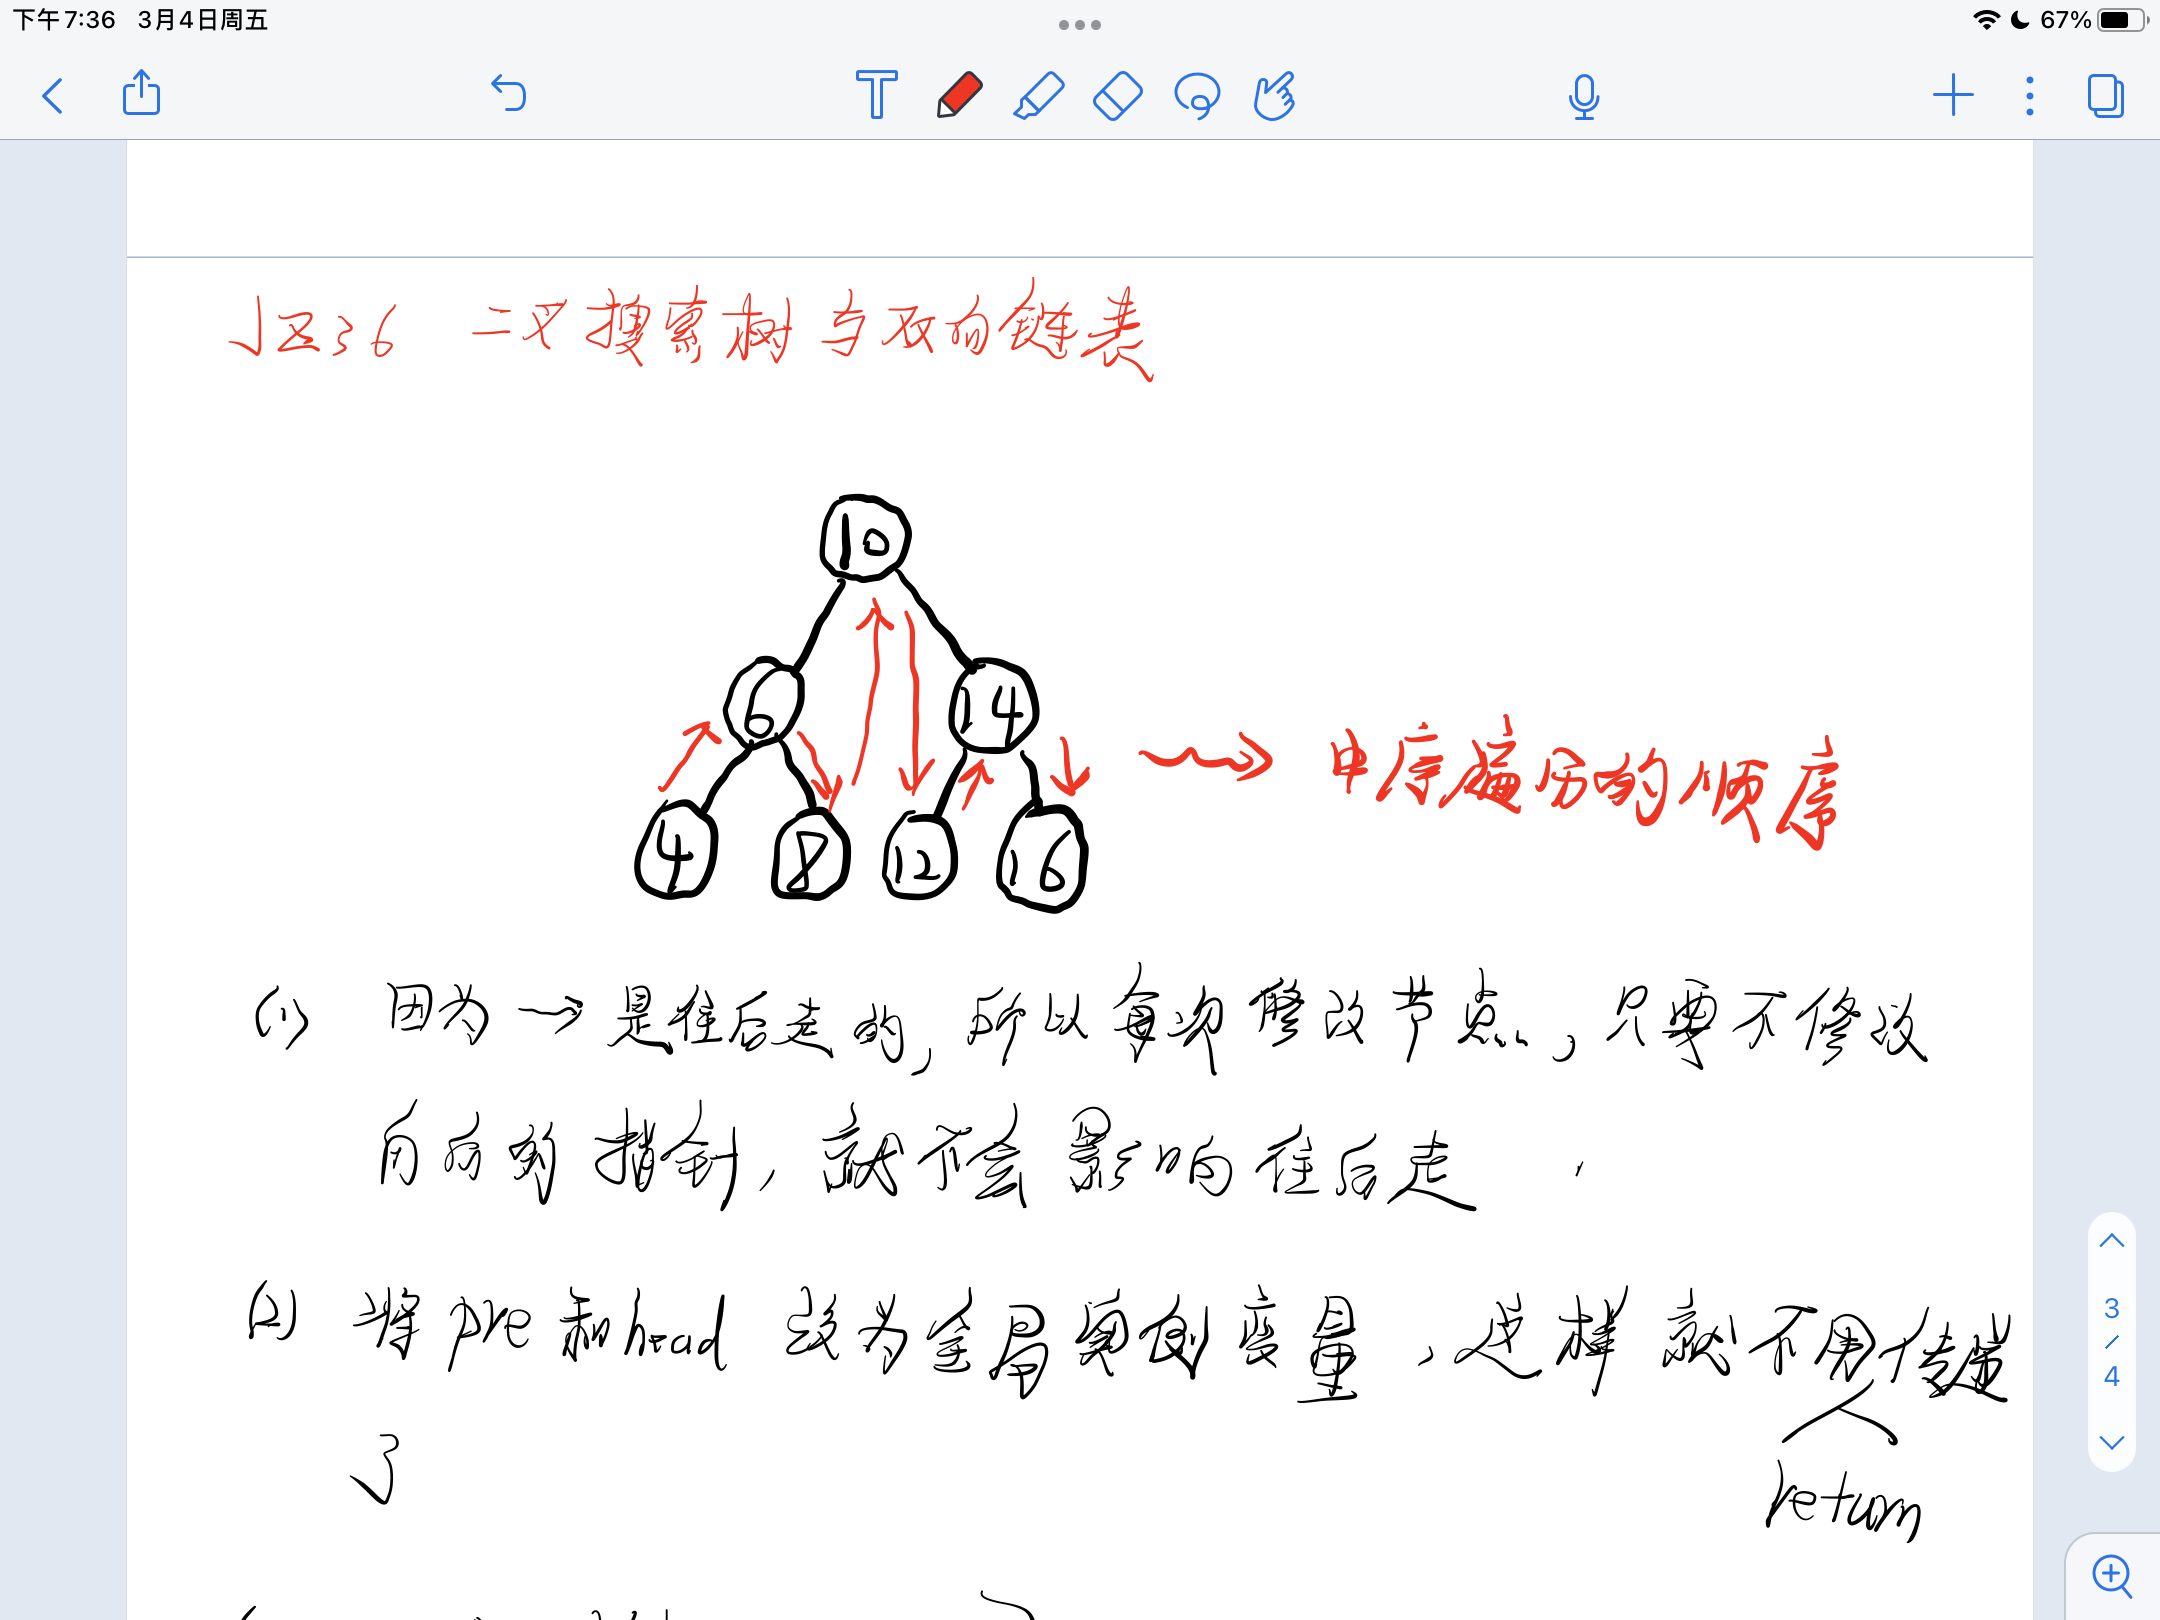 下午7:36 3月4日周五
67%
JZ36 二叉搜索树与双向链表
10
6 14
4 8 12 16
中序遍历的顺序
(1) 因为→是往后走的,所以每次修改节点,只要不修改
向后的指针,就不会影响往后走
(2) 将pre和head 改为全局实例变量,这样就不用传递
return
了
3
4